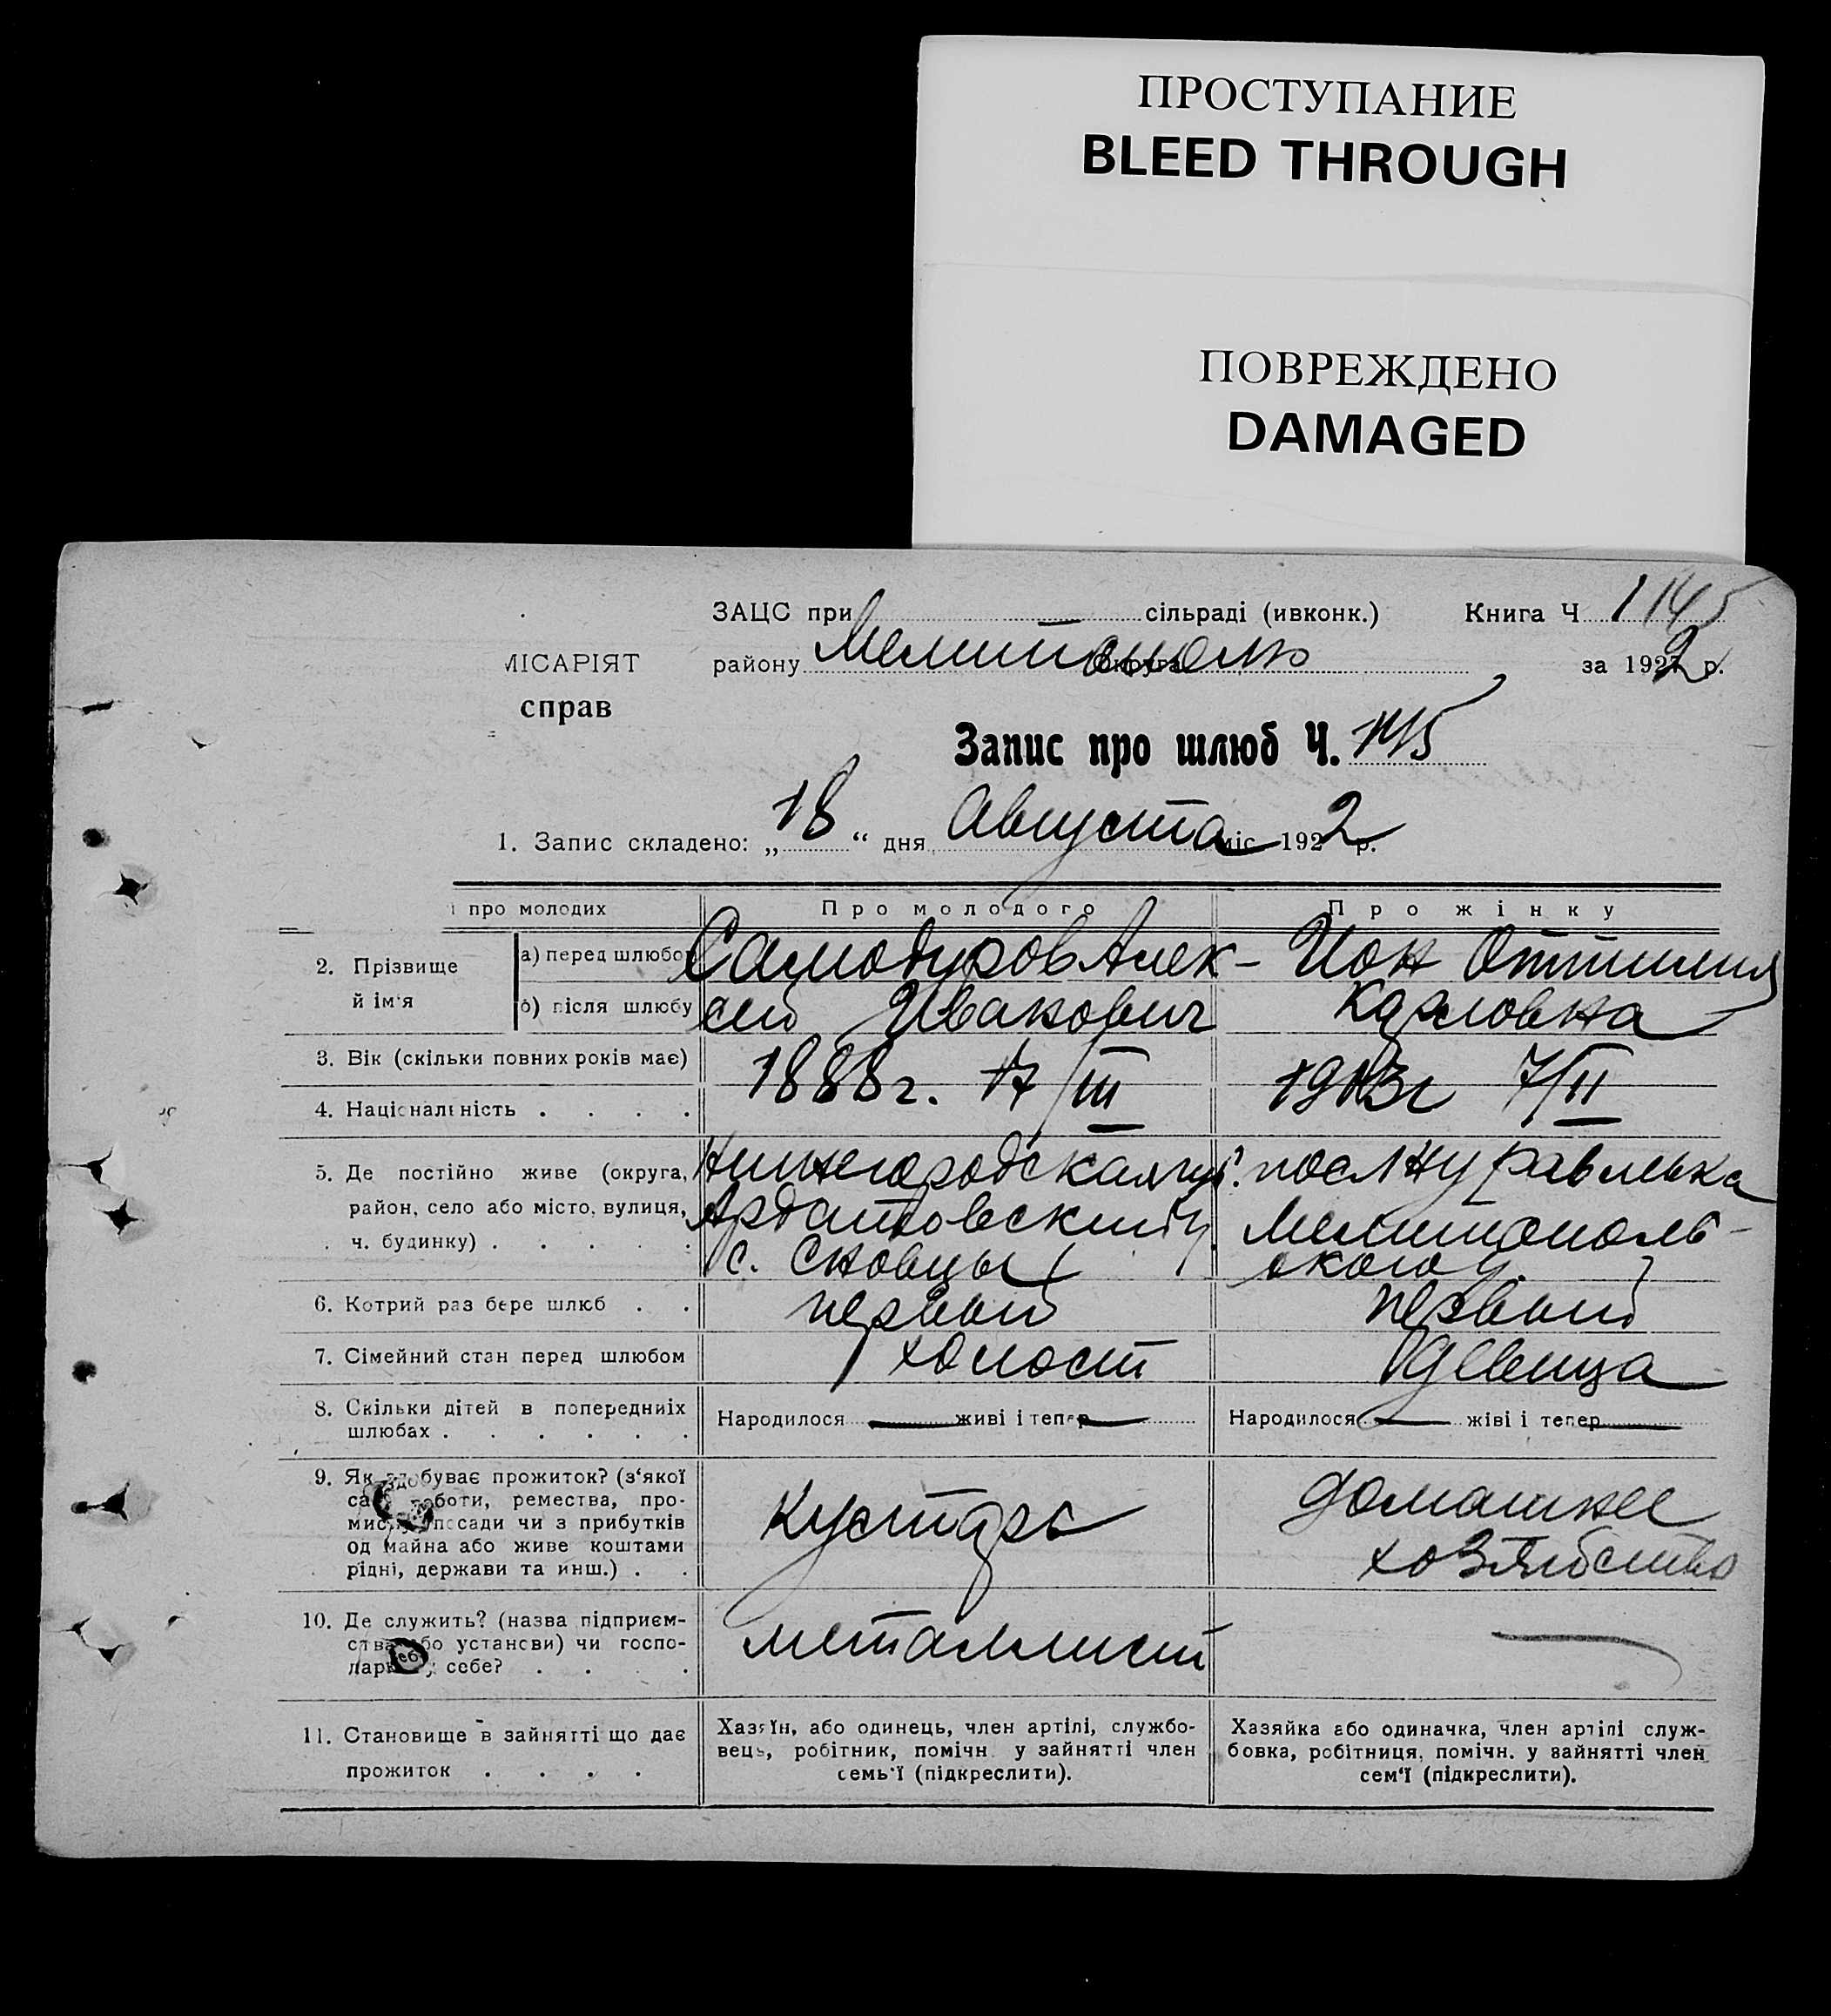 ПРОСТУПАНИЕ
BLEED THROUGH
ПОВРЕЖДЕНО
DAMAGED
ЗАЦС при сільраді (ивконк.) Книга Ч 1145
МІСАРІЯТ району Мелитополь округа за 1922 р.
справ
Запис про шлюб Ч. 1145
1. Запис складено: „ 18 “ дня Августа міс 1922 р.
і про молодих Про молодого Про жінку
2. Прізвище й ім'я а) перед шлюбо Самодуров Алек- Йон Оттилия
б) після шлюбу сей Иванович Карловна
3. Вік (скільки повних років має) 1888 г. 17/III 1913 г 7/II
4. Національність . . . .
5. Де постійно живе (округа, Нижегородская губ.
район, село або місто, вулиця, Ардатовский у. Мелитополь-
ч. будинку) . . . . . с. ского у.
6. Котрий раз бере шлюб . . первый первый
7. Сімейний стан перед шлюбом холост девица
8. Скільки дітей в попередніх Народилося — живі і тепер — Народилося — жіві і тепер —
шлюбах . . . . . .
9. Як здобуває прожиток? (з‘якої
роботи, ремества, про-
посади чи з прибутків Кустарь домашнее
од майна або живе коштами хозяйство
рідні, держави та инш.) . .
10. Де служить? (назва підприєм-
ства або установи) чи госпо- металлист —
себе? . . . .
11. Становище в зайнятті що дає Хазяїн, або одинець, член артілі, службо- Хазяйка або одиначка, член артілі служ-
прожиток . . . . вець, робітник, помічн. у зайнятті член бовка, робітниця, помічн. у зайнятті член
семь'ї (підкреслити). сем'ї (підкреслити).